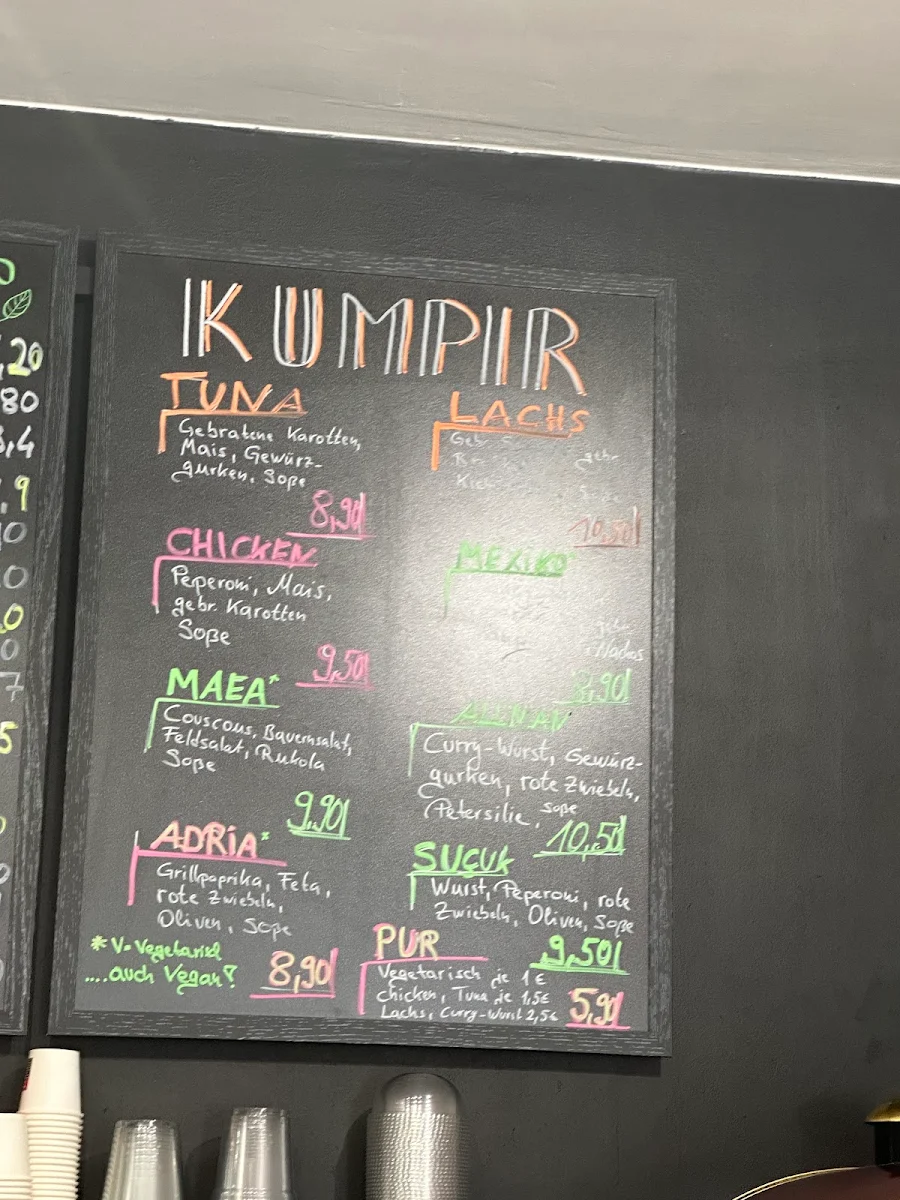 KUMPIR
TUNA
Gebratene Karotten,
Mais, Gewürz-
gurken, Soße
8,90
CHICKEN
Peperoni, Mais,
gebr. Karotten
Soße
9,50
MAEA*
Couscous, Bauernsalat,
Feldsalat, Rukola
Soße
9,90
ADRiA*
Grillpaprika, Feta,
rote Zwiebeln,
Oliven, Soße
8,90
* V=Vegetarisch
....auch Vegan?
LACHS
gebr.
10,50
MEXIKO
gebr.
Nachos
,90
Curry-Wurst, Gewürz-
gurken, rote Zwiebeln,
Petersilie, Soße
10,50
SUÇUK
Wurst, Peperoni, rote
Zwiebeln, Oliven, Soße
9,50
PUR
Vegetarisch je 1 €
chicken, Tuna je 1,5€
Lachs, Curry-Wurst 2,5€
5,90
,20
80
3,4
,9
10
0
,0
0
7
5